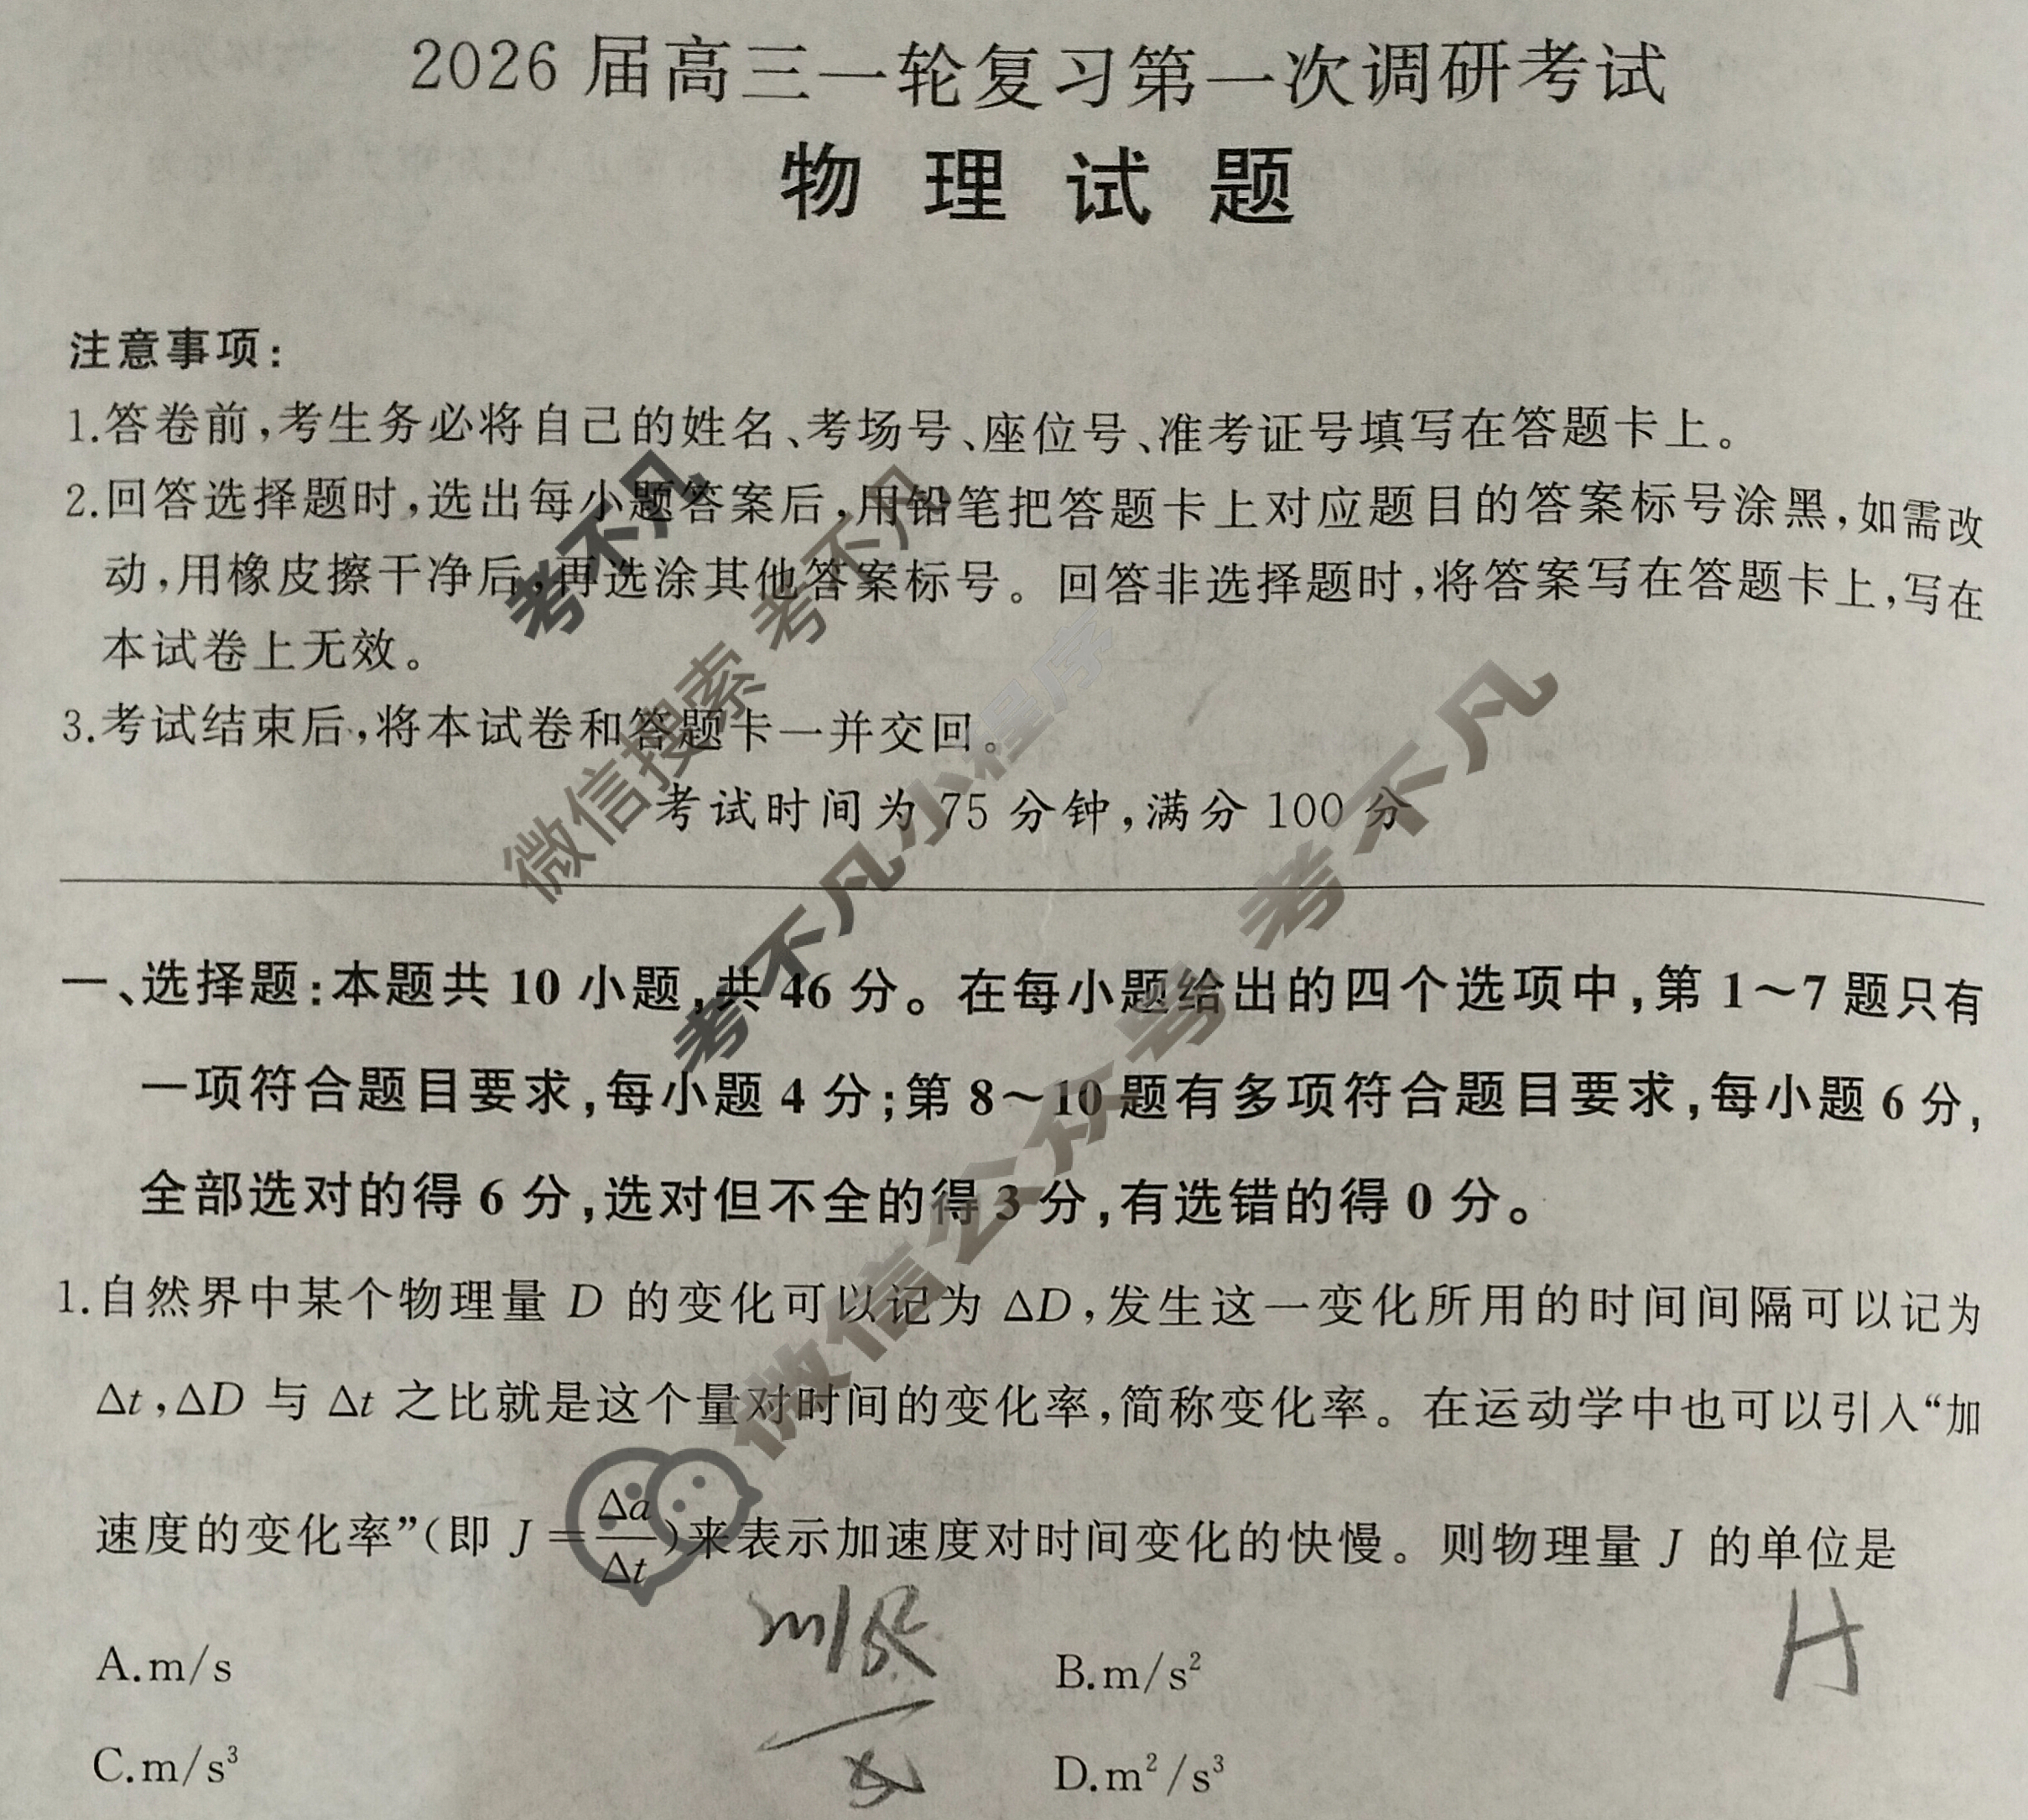 2026 届高三一轮复习第一次调研考试
物 理 试 题
注意事项:
1.答卷前,考生务必将自己的姓名、考场号、座位号、准考证号填写在答题卡上。
2.回答选择题时,选出每小题答案后,用铅笔把答题卡上对应题目的答案标号涂黑,如需改
动,用橡皮擦干净后,再选涂其他答案标号。回答非选择题时,将答案写在答题卡上,写在
本试卷上无效。
3.考试结束后,将本试卷和答题卡一并交回。
考试时间为 75 分钟,满分 100 分
考不凡
微信搜索 考不凡
考不凡小程序
微信公众号 考不凡
一、选择题:本题共 10 小题,共 46 分。在每小题给出的四个选项中,第 1～7 题只有
一项符合题目要求,每小题 4 分;第 8～10 题有多项符合题目要求,每小题 6 分,
全部选对的得 6 分,选对但不全的得 3 分,有选错的得 0 分。
1.自然界中某个物理量 D 的变化可以记为 ΔD,发生这一变化所用的时间间隔可以记为
Δt,ΔD 与 Δt 之比就是这个量对时间的变化率,简称变化率。在运动学中也可以引入“加
速度的变化率”(即 J=Δa/Δt)来表示加速度对时间变化的快慢。则物理量 J 的单位是
A.m/s
B.m/s²
C.m/s³
D.m²/s³